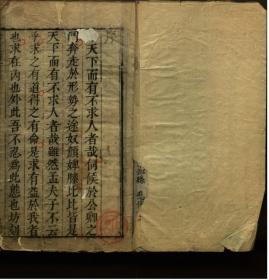 序
天下而有不求人者哉伺候於公卿之
門奔走於形勢之途奴顏婢膝比比皆是
天下而有不求人者哉雖然孟夫子不云
乎求之有道得之有命是求有益於我者
也求在內也外此吾不忍爲此態也坊刻